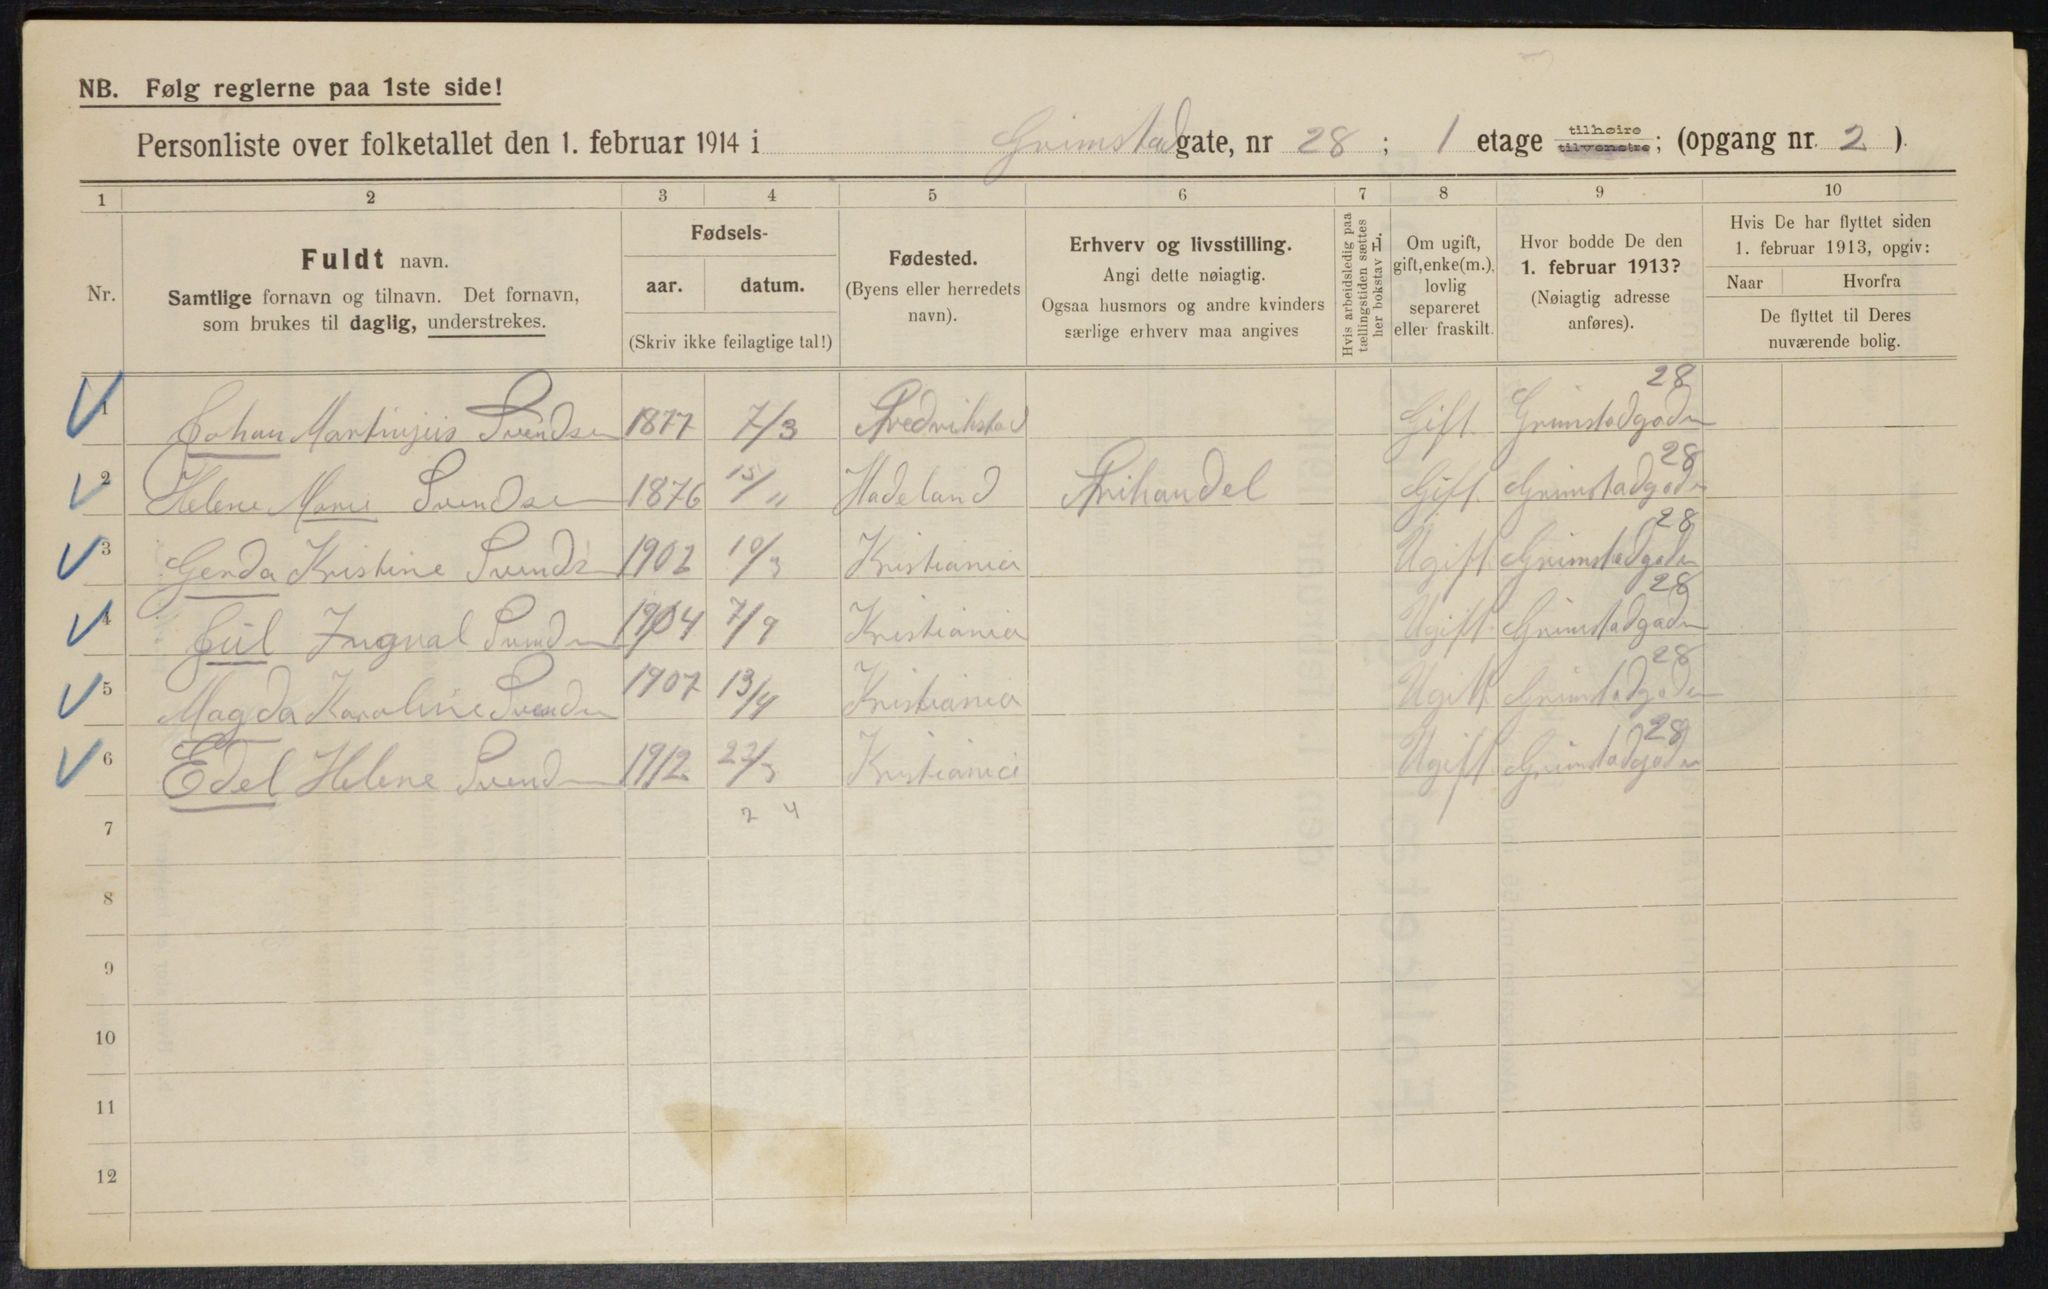 NB. Følg reglerne paa 1ste side!
Personliste over folketallet den 1. februar 1914 i Grimstadgate, nr 28 ; 1 etage tilhøire tilvenstre ; (opgang nr. 2 ).
1 2 3 4 5 6 7 8 9 10
Nr.
Fuldt navn.
Samtlige fornavn og tilnavn. Det fornavn,
som brukes til daglig, understrekes.
Fødsels-
aar. datum.
(Skriv ikke feilagtige tal!)
Fødested.
(Byens eller herredets
navn).
Erhverv og livsstilling.
Angi dette nøiagtig.
Ogsaa husmors og andre kvinders
særlige erhverv maa angives
Hvis arbeidsledig paa
tællingstiden sættes
her bokstav L.
Om ugift,
gift, enke(m.),
lovlig
separeret
eller fraskilt.
Hvor bodde De den
1. februar 1913?
(Nøiagtig adresse
anføres).
Hvis De har flyttet siden
1. februar 1913, opgiv:
Naar Hvorfra
De flyttet til Deres
nuværende bolig.
1 Johan Martinjus Svendsen 1877 7/3 Fredrikstad Gift Grimstadgaden 28
2 Helene Marie Svendsen 1876 15/11 Hadeland Frihandel Gift Grimstadgaden 28
3 Gerda Kristine Svends 1902 10/3 Kristiania Ugift Grimstadgaden 28
4 Jul Ingval Svendsen 1904 7/9 Kristiania Ugift Grimstadgaden 28
5 Magda Karoline Svendsen 1907 13/4 Kristiania Ugift Grimstadgaden 28
6 Edel Helene Svendsen 1912 22/3 Kristiania Ugift Grimstadgaden 28
7 2 4
8
9
10
11
12